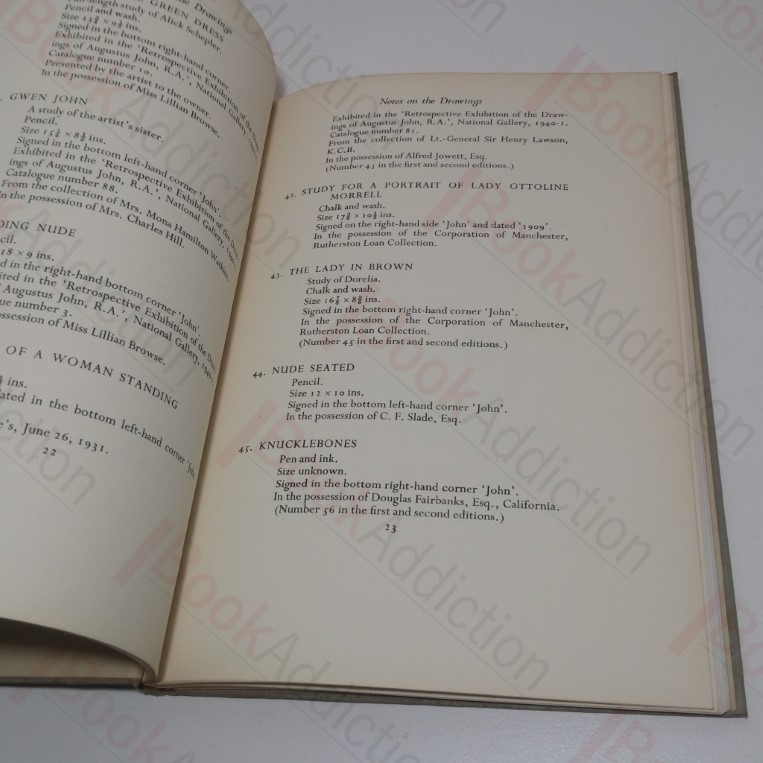 the Drawings
GREEN DRESS
length study of Alick Schepler.
Pencil and wash.
Size 13 × 9 ins.
Signed in the bottom right-hand corner.
Exhibited in the 'Retrospective Exhibition of the
ings of Augustus John, R.A.', National Gallery,
Catalogue number 10.
Presented by the artist to the owner.
In the possession of Miss Lillian Browse.
GWEN JOHN
A study of the artist's sister.
Pencil.
Size 15 × 8 ins.
Signed in the bottom left-hand corner 'John'.
Exhibited in the 'Retrospective Exhibition of the
ings of Augustus John, R.A.', National Gallery,
Catalogue number 88.
From the collection of Mrs. Mona Hamilton Watkins.
In the possession of Mrs. Charles Hill.
DING NUDE
cil.
18 × 9 ins.
d in the right-hand bottom corner 'John'.
ited in the 'Retrospective Exhibition of the
Augustus John, R.A.', National Gallery,
gue number 3.
ossession of Miss Lillian Browse.
OF A WOMAN STANDING
ins.
ated in the bottom left-hand corner
e's, June 26, 1931.
22
Notes on the Drawings
Exhibited in the 'Retrospective Exhibition of the Draw-
ings of Augustus John, R.A.', National Gallery, 1940-1.
Catalogue number 81.
From the collection of Lt.-General Sir Henry Lawson,
K.C.B.
In the possession of Alfred Jowett, Esq.
(Number 43 in the first and second editions.)
42. STUDY FOR A PORTRAIT OF LADY OTTOLINE
MORRELL
Chalk and wash.
Size 17⅞ × 10½ ins.
Signed on the right-hand side 'John' and dated '1909'.
In the possession of the Corporation of Manchester,
Rutherston Loan Collection.
43. THE LADY IN BROWN
Study of Dorelia.
Chalk and wash.
Size 16⅞ × 8⅝ ins.
Signed in the bottom right-hand corner 'John'.
In the possession of the Corporation of Manchester,
Rutherston Loan Collection.
(Number 45 in the first and second editions.)
44. NUDE SEATED
Pencil.
Size 12 × 10 ins.
Signed in the bottom left-hand corner 'John'.
In the possession of C. F. Slade, Esq.
45. KNUCKLEBONES
Pen and ink.
Size unknown.
Signed in the bottom right-hand corner 'John'.
In the possession of Douglas Fairbanks, Esq., California.
(Number 56 in the first and second editions.)
23
BookAddiction